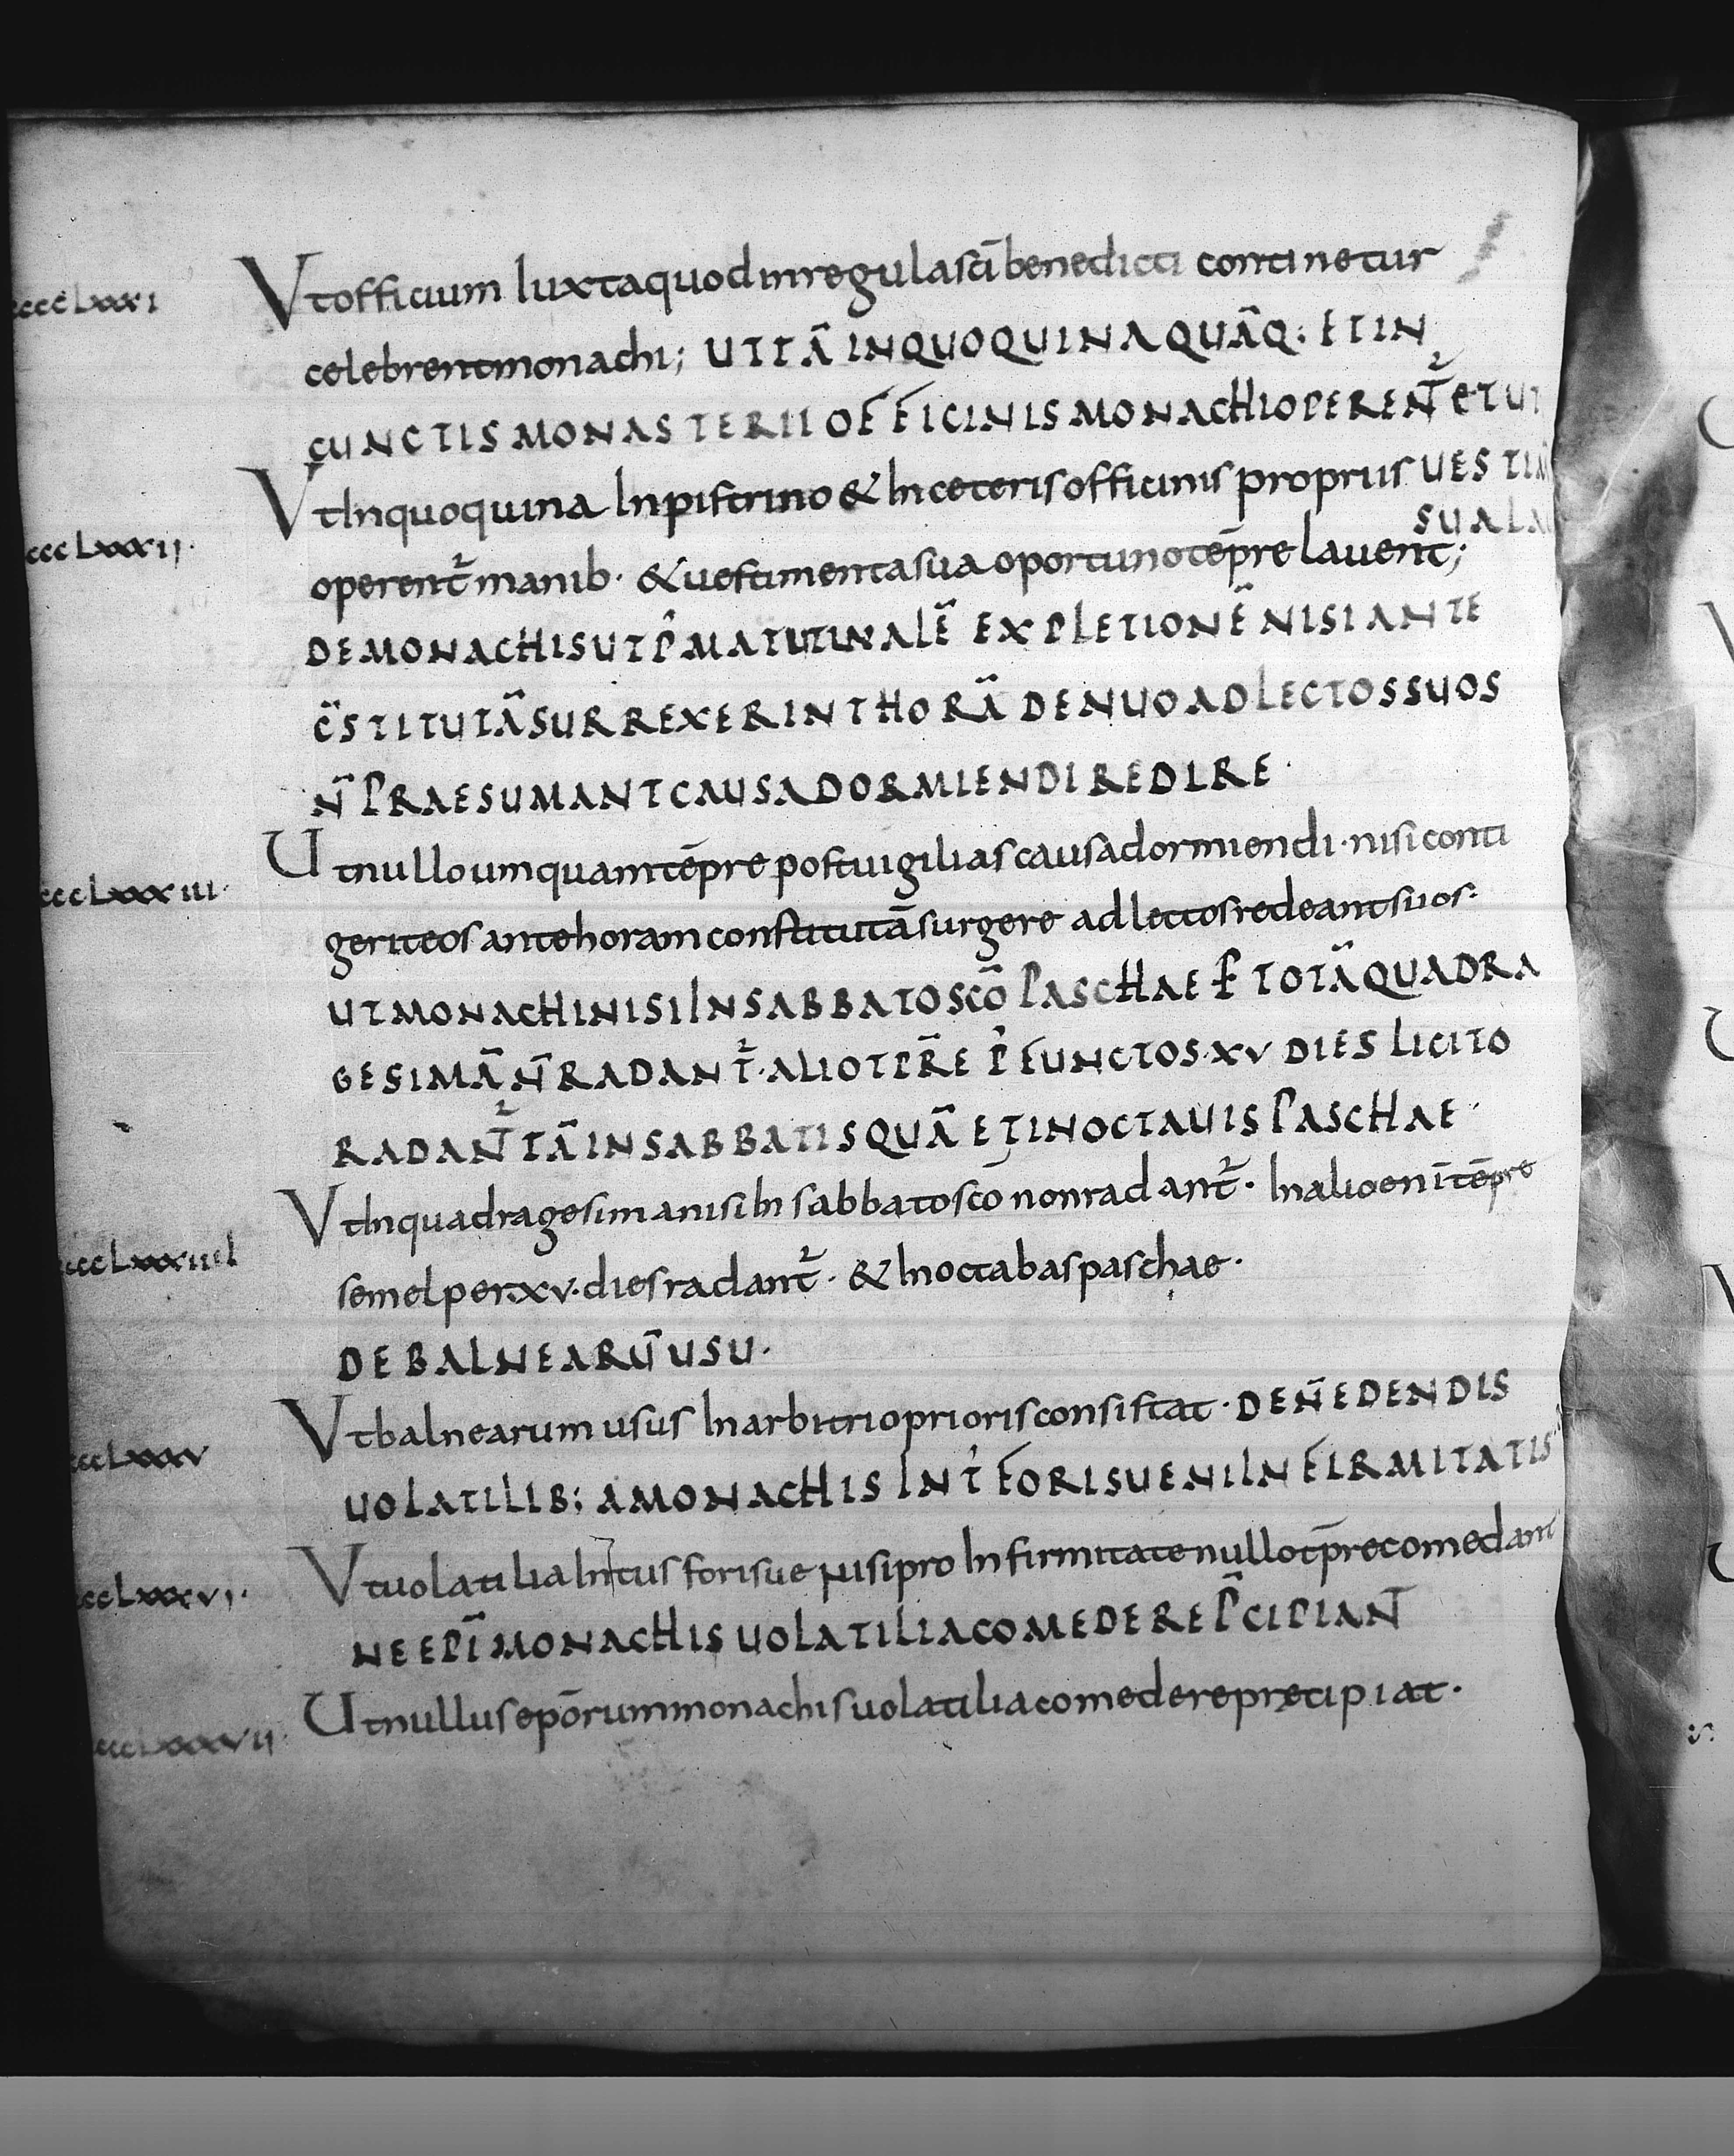 ccccLxxxi Vt officium Iuxta quod in regula scī benedicti continetur
celebrent monachi; UT TĀ IN QUOQUINA QUĀQ: ET IN
CUNCTIS MONASTERII OFFICINIS MONACHI OPERENT̄ ET UT
cccLxxxii· Vt In quoquina In pistrino & In ceteris officinis propriis UESTIM
SUA LA
operent̄ manib· & uestimenta sua oportuno tēpre lauent;
DE MONACHIS UT P̄ MATUTINALĒ EXPLETIONĒ NISI ANTE
C̄STITUTĀ SURREXERINT HORĀ DENUO AD LECTOS SUOS
N̄ PRAESUMANT CAUSA DORMIENDI REDIRE·
cccLxxxiii· Ut nullo umquam tēpre post uigilias causa dormiendi· nisi conti
gerit eos ante horam constitutā surgere ad lectos redeant suos:
UT MONACHI NISI IN SABBATO SCŌ PASCHAE P̱ TOTĀ QUADRA
GESIMĀ N̄ RADANT̄· ALIO TPR̄E P̄ FUNCTOS·XV DIES LICITO
RADANT̄ TĀ IN SABBATIS QUĀ ET IN OCTAUIS PASCHAE·
cccLxxxiiiI Vt In quadragesima nisi In sabbato scō non radant̄· In alio enī tēpre
semel per·xv·dies radant̄· & In octabas paschae·
DE BALNEARŪ USU·
cccLxxxv Vt balnearum usus In arbitrio prioris consistat· DE N̄ EDENDIS
UOLATILIB; A MONACHIS INT̄ FORISUE NI IN FIRMITATIS
cccLxxxvi· Vt uolatilia Intus forisue nisi pro Infirmitate nullo tp̄re comedant
NE EPĪ MONACHIS UOLATILIA COMEDERE P̄CIPIANT
cccLxxxvii· Ut nullus epōrum monachis uolatilia comedere precipiat·